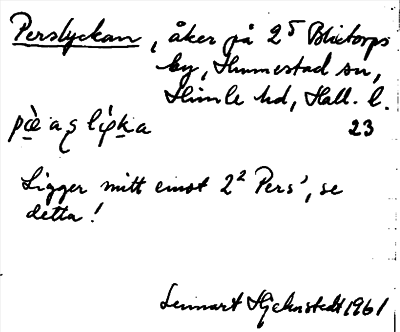 Perslyckan, åker på 2⁵ Blixtorps
by, Hunnestad sn,
Himle hd, Hall. l.
pæ̀aʂlýka 23
Ligger mitt emot 2² Pers', se
detta!
Lennart Hjelmstedt 1961